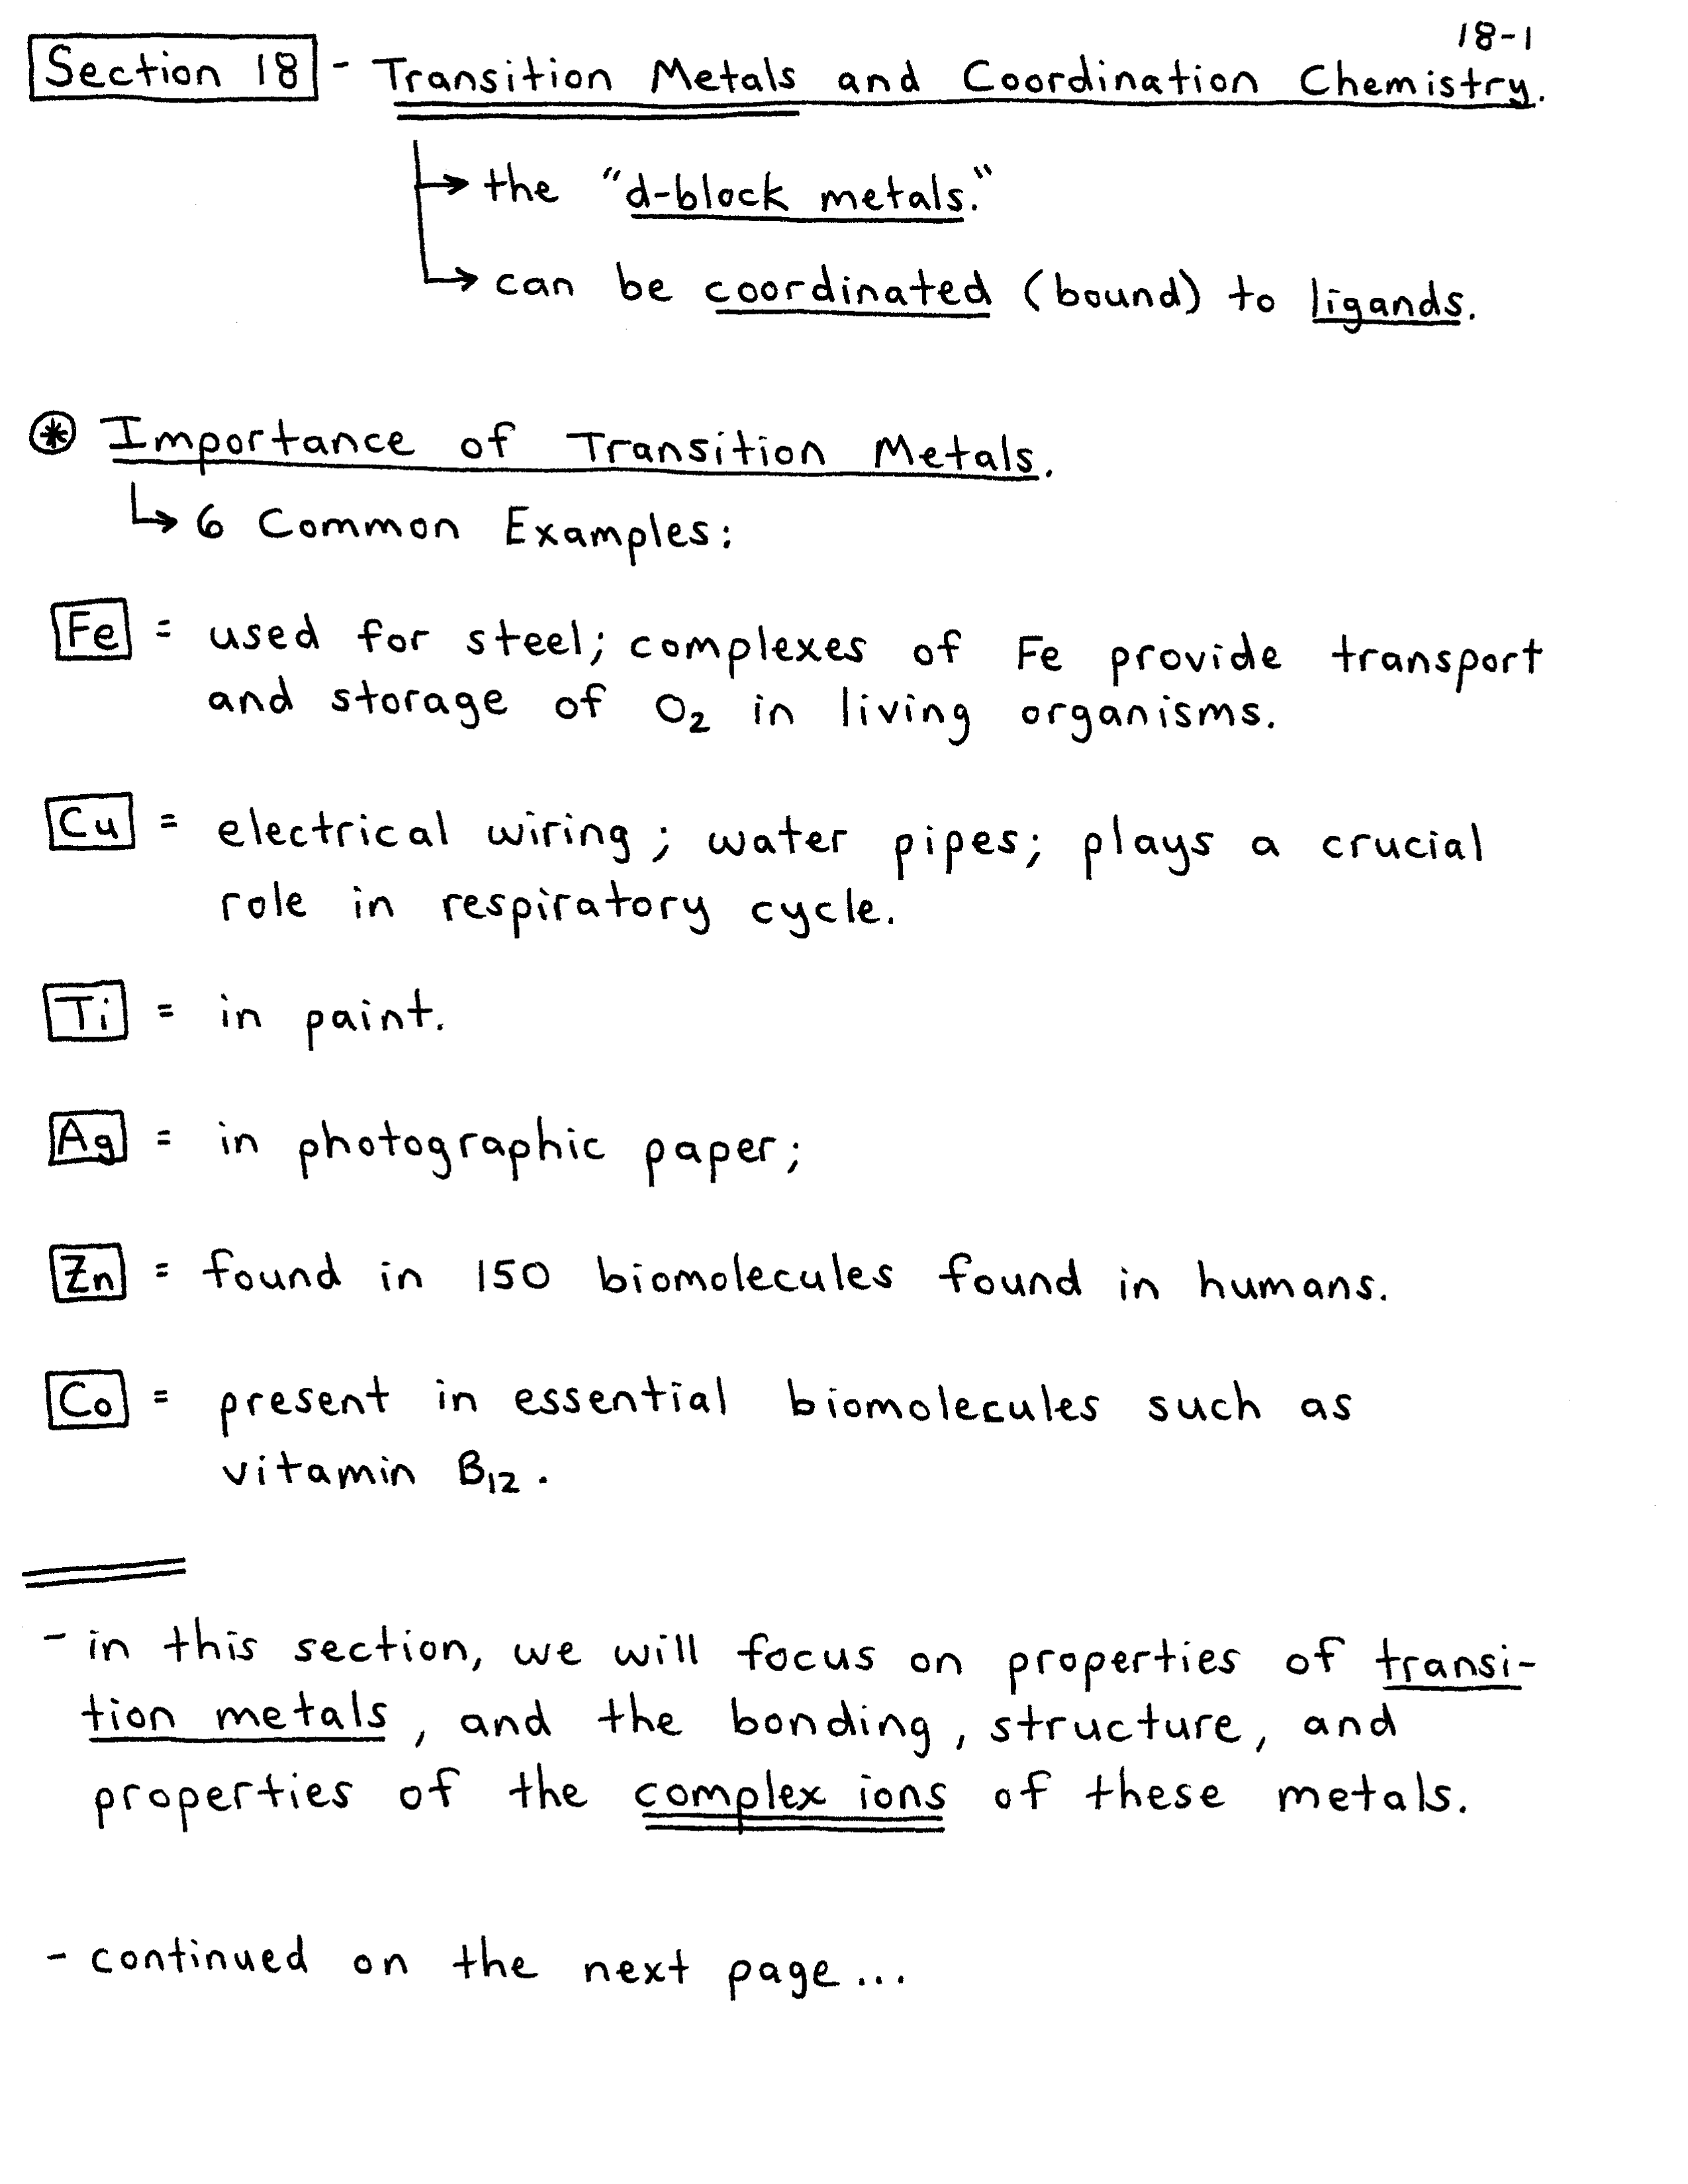 18-1
Section 18 - Transition Metals and Coordination Chemistry.
↳ the "d-block metals."
↳ can be coordinated (bound) to ligands.
⊛ Importance of Transition Metals.
↳ 6 Common Examples:
Fe = used for steel; complexes of Fe provide transport
and storage of O₂ in living organisms.
Cu = electrical wiring; water pipes; plays a crucial
role in respiratory cycle.
Ti = in paint.
Ag = in photographic paper;
Zn = found in 150 biomolecules found in humans.
Co = present in essential biomolecules such as
vitamin B₁₂.
- in this section, we will focus on properties of transi-
tion metals, and the bonding, structure, and
properties of the complex ions of these metals.
- continued on the next page...